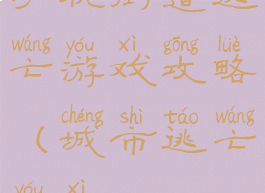 wáng yóu xì gōng lüè
亡游戏攻略
chéng shì táo wáng
(城市逃亡
yóu xì